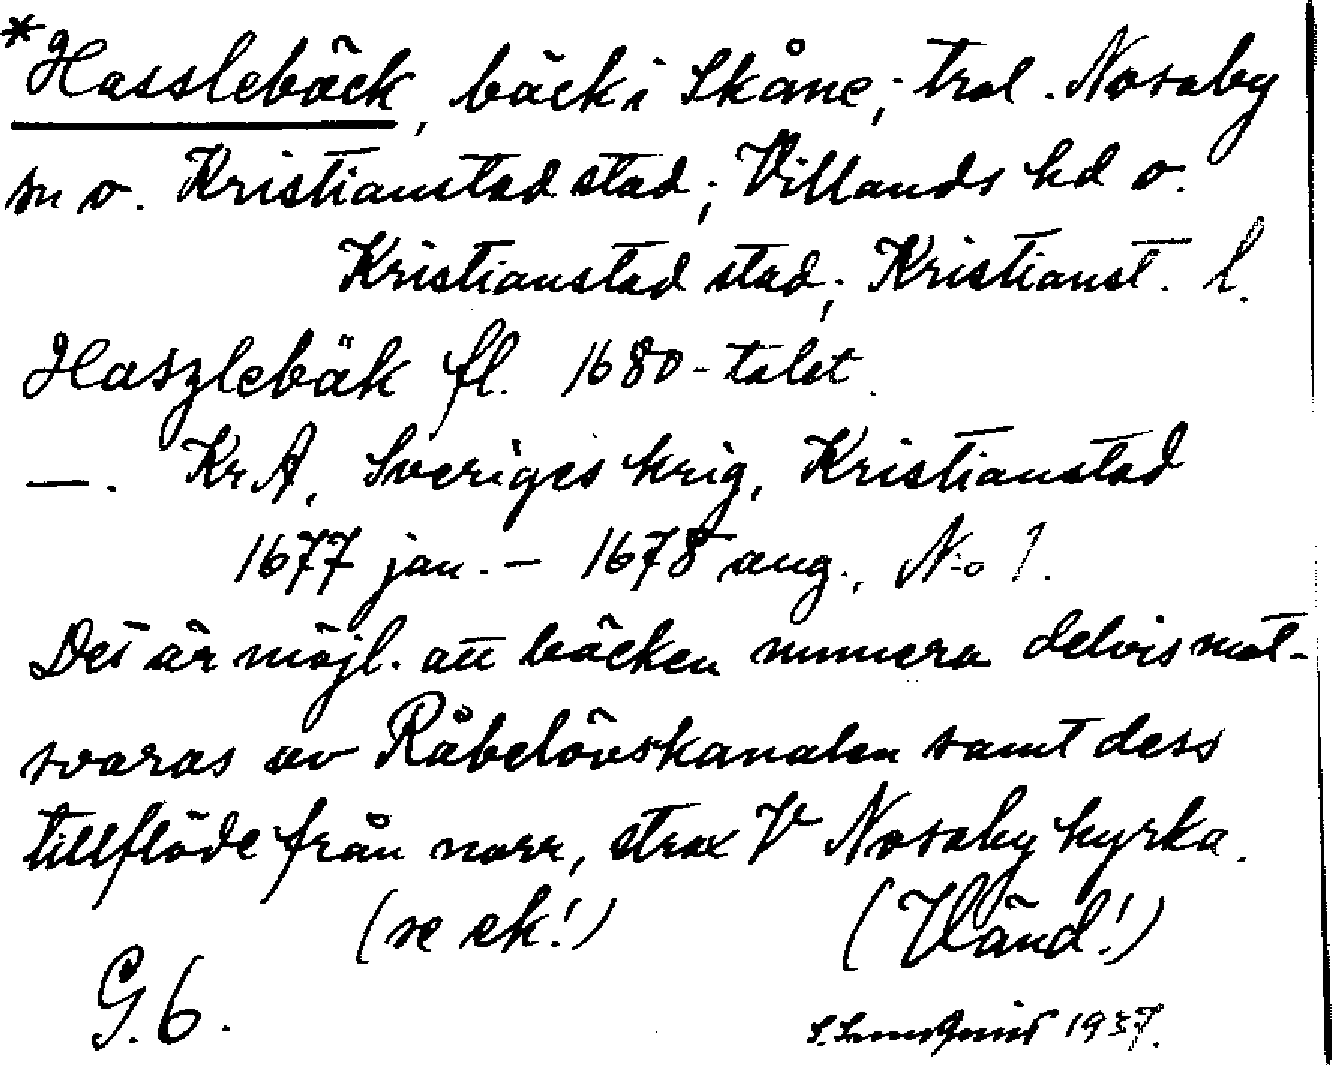 *Hasslebäck, bäck i Skåne; trol. Nosaby
sn o. Kristianstad stad; Villands hd o.
Kristianstad stad; Kristianst. l.
Haszlebäk fl. 1680-talet.
—. KrA, Sveriges krig, Kristianstad
1677 jan. – 1678 aug., N:o 1.
Det är möjl. att bäcken numera delvis mot-
svaras av Råbelövskanalen samt dess
tillflöde från norr, strax V Nosaby kyrka.
(se ek!) (Vänd!)
G. 6.
S. Lundquist 1937.